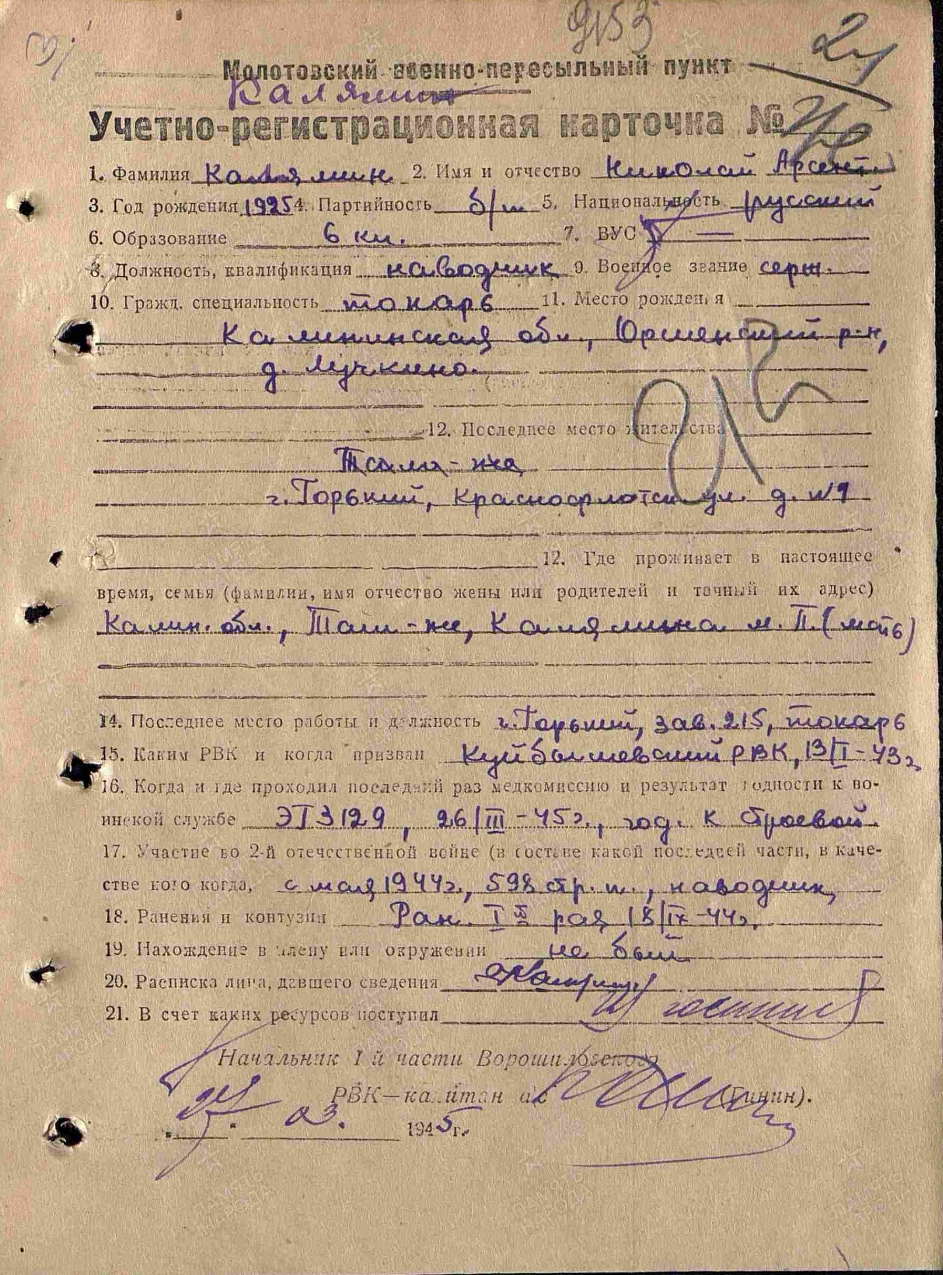 9153
Молотовский военно-пересыльный пункт
Калямин
Учетно-регистрационная карточка №
1. Фамилия Калямин 2. Имя и отчество Николай Арсент
3. Год рождения 1925 4. Партийность б/п 5. Национальность русский
6. Образование 6 кл. 7. ВУС —
8. Должность, квалификация наводчик 9. Военное звание серж.
10. Гражд. специальность токарь 11. Место рождения
Калининская обл., Оршенский р-н,
д. Лучкино.
12. Последнее место жительства
Там-же
г. Горький, Краснофлотск ул. д. №1
12. Где проживает в настоящее
время, семья (фамилии, имя отчество жены или родителей и точный их адрес)
Калин. обл., Там-же, Калямина М. П. (мать)
14. Последнее место работы и должность г. Горький, зав. 215, токарь
15. Каким РВК и когда призван Куйбышевский РВК, 13/I-43г.
16. Когда и где проходил последний раз медкомиссию и результат годности к во-
инской службе ЭГ 3129, 26/III-45г., год. к строевой
17. Участие во 2-й отечественной войне (в составе какой последней части, в каче-
стве кого когда, с мая 1944г., 598 стр. п., наводчик
18. Ранения и контузии Ран. I раз 18/IX-44г.
19. Нахождение в плену или окружении не был
20. Расписка лица, давшего сведения
21. В счет каких ресурсов поступил
Начальник 1-й части Ворошиловского
РВК—капитан а/с
27 03. 1945 г.